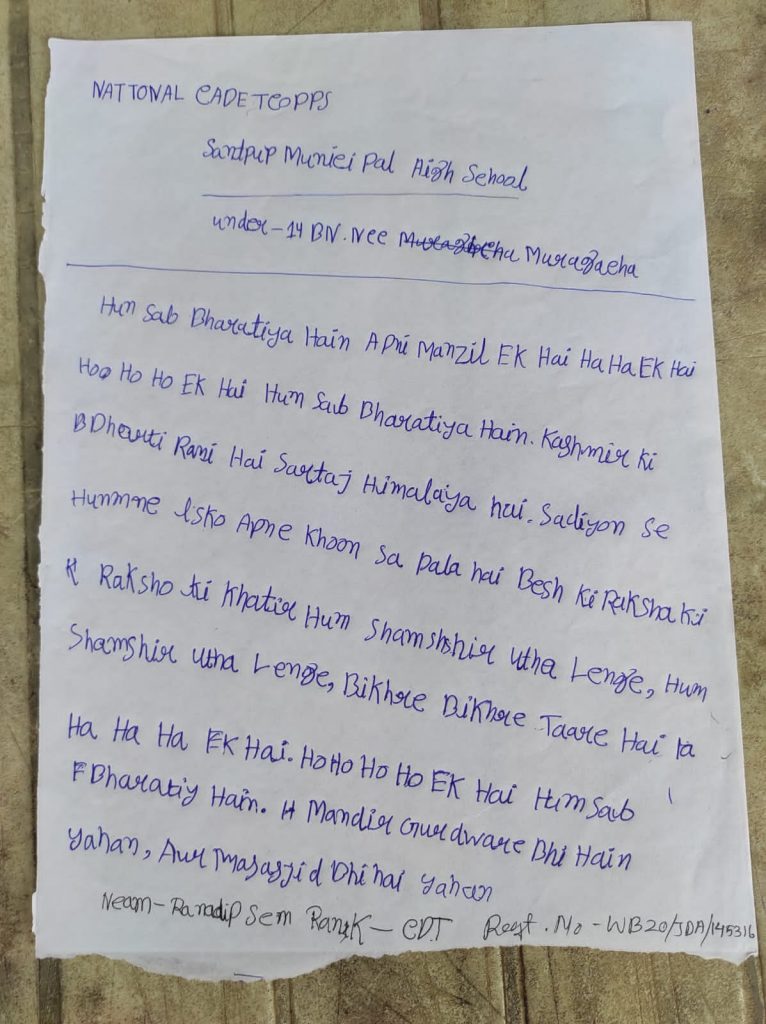 NATTONAL CADETCOPPS
Santpup Municipal High School
under-14 BN. Ncc Muragacha
Hum Sab Bharatiya Hain Apni Manzil EK Hai Ha Ha EK Hai
Hoo Ho Ho EK Hai Hum Sab Bharatiya Hain. Kashmir Ki
Dharti Rani Hai Sartaj Himalaiya hai. Sadiyon Se
Hummne isko Apne Khoon Sa pala hai Desh Ki Raksha Ki
Raksho ki Khatir Hum Shamshshir Utha Lenge, Hum
Shamshir Utha Lenge, Bikhre Bikhre Taare Hai
Ha Ha Ha EK Hai. Ho Ho Ho Ho EK Hai Hum Sab
Bharatiy Hain. Mandir Gurdware Bhi Hain
Yahan, Aur Masasjid Dhi hai yahan
Neam- Ranadip Sem Rank - CDT Regt. No - WB20/JDA/145316